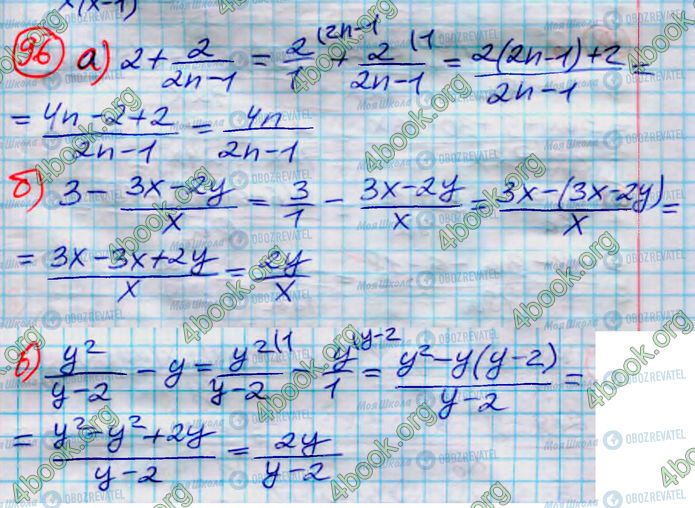 x(x-1)
96 а) 2 + 2/(2n-1) = 2/1 (2n-1 + 2/(2n-1) (1 = (2(2n-1)+2)/(2n-1) =
= (4n-2+2)/(2n-1) = 4n/(2n-1)
б) 3 - (3x-2y)/x = 3/1 - (3x-2y)/x = (3x-(3x-2y))/x =
= (3x-3x+2y)/x = 2y/x
б) y²/(y-2) - y = y²/(y-2) (1 - y/1 (y-2 = (y²-y(y-2))/(y-2) =
= (y²-y²+2y)/(y-2) = 2y/(y-2)
4book.org
Моя Школа
OBOZREVATEL